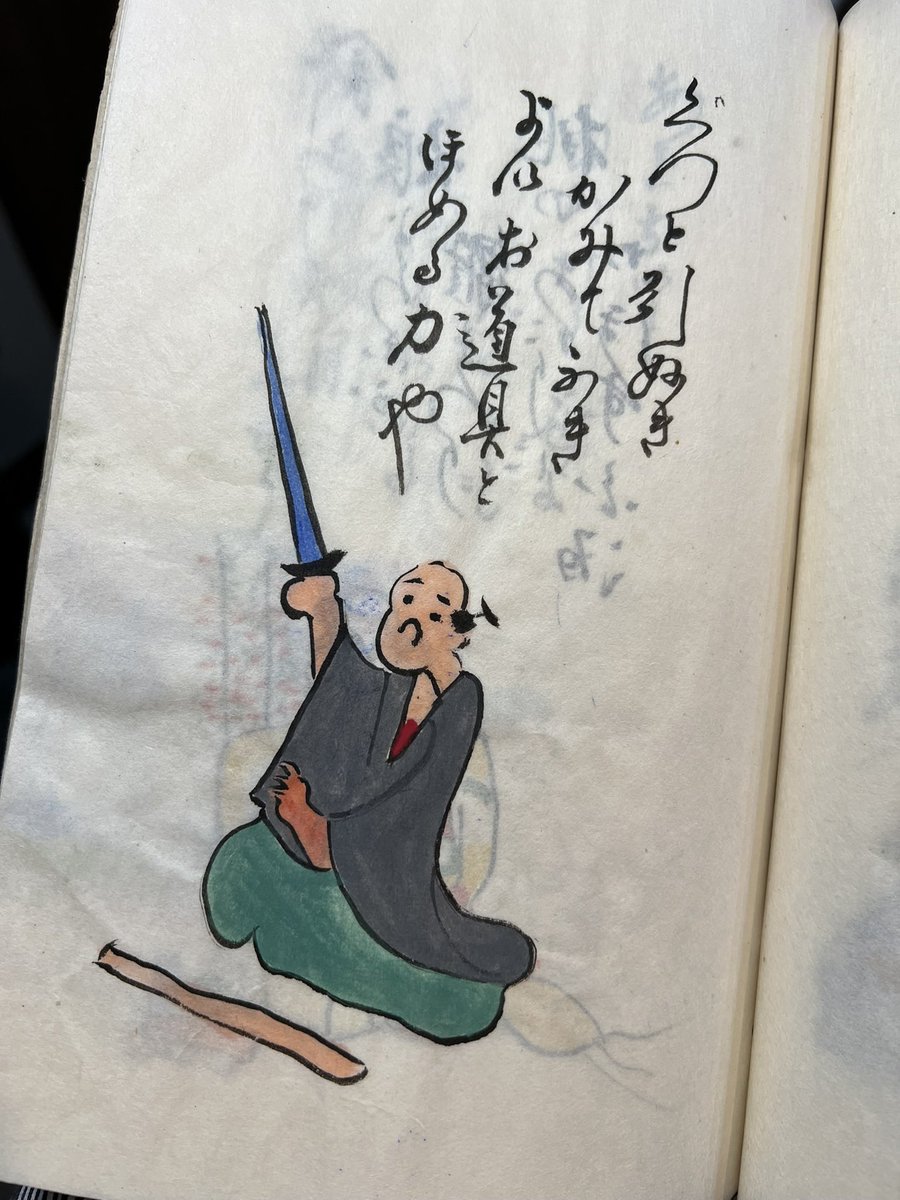 ぐつと引ぬき
かみてふき
よいお道具と
ほめる刀や